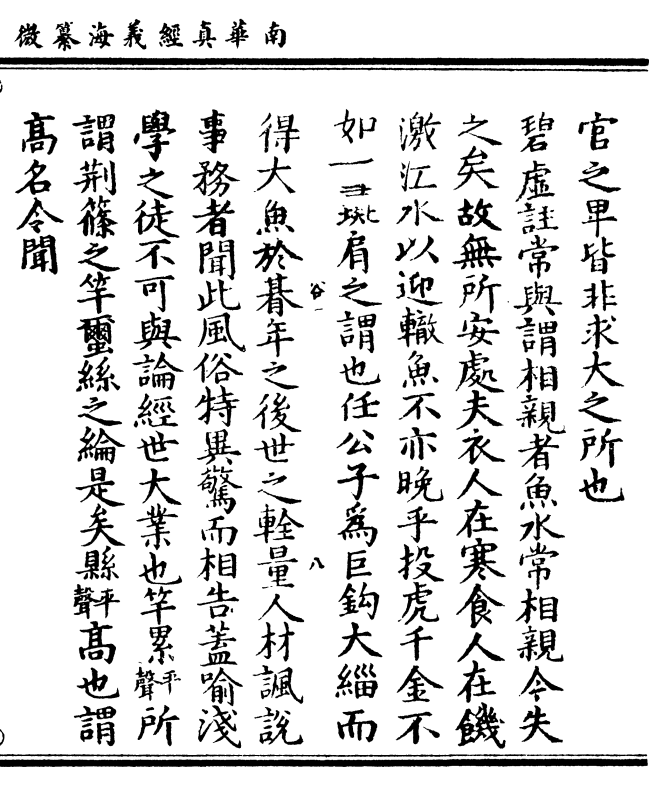 南華真經義海纂微
官之卑皆非求大之所也
碧虛註常與謂相親者魚水常相親今失
之矣故無所安處夫衣人在寒食人在饑
激江水以迎轍魚不亦晚乎投虎千金不
如一肩之謂也任公子為巨鈎大緇而
得大魚於朞年之後世之輇量人材諷說
事務者聞此風俗特異驚而相告蓋喻淺
學之徒不可與論經世大業也竿累平聲所
謂荆篠之竿璽絲之綸是矣縣平聲髙也謂
髙名令聞
八